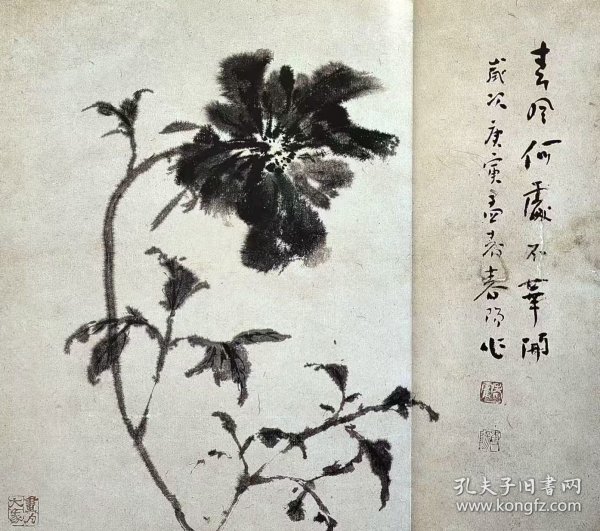 春风何處不華開
歲次庚寅孟春陽作
孔夫子旧书网
www.kongfz.com